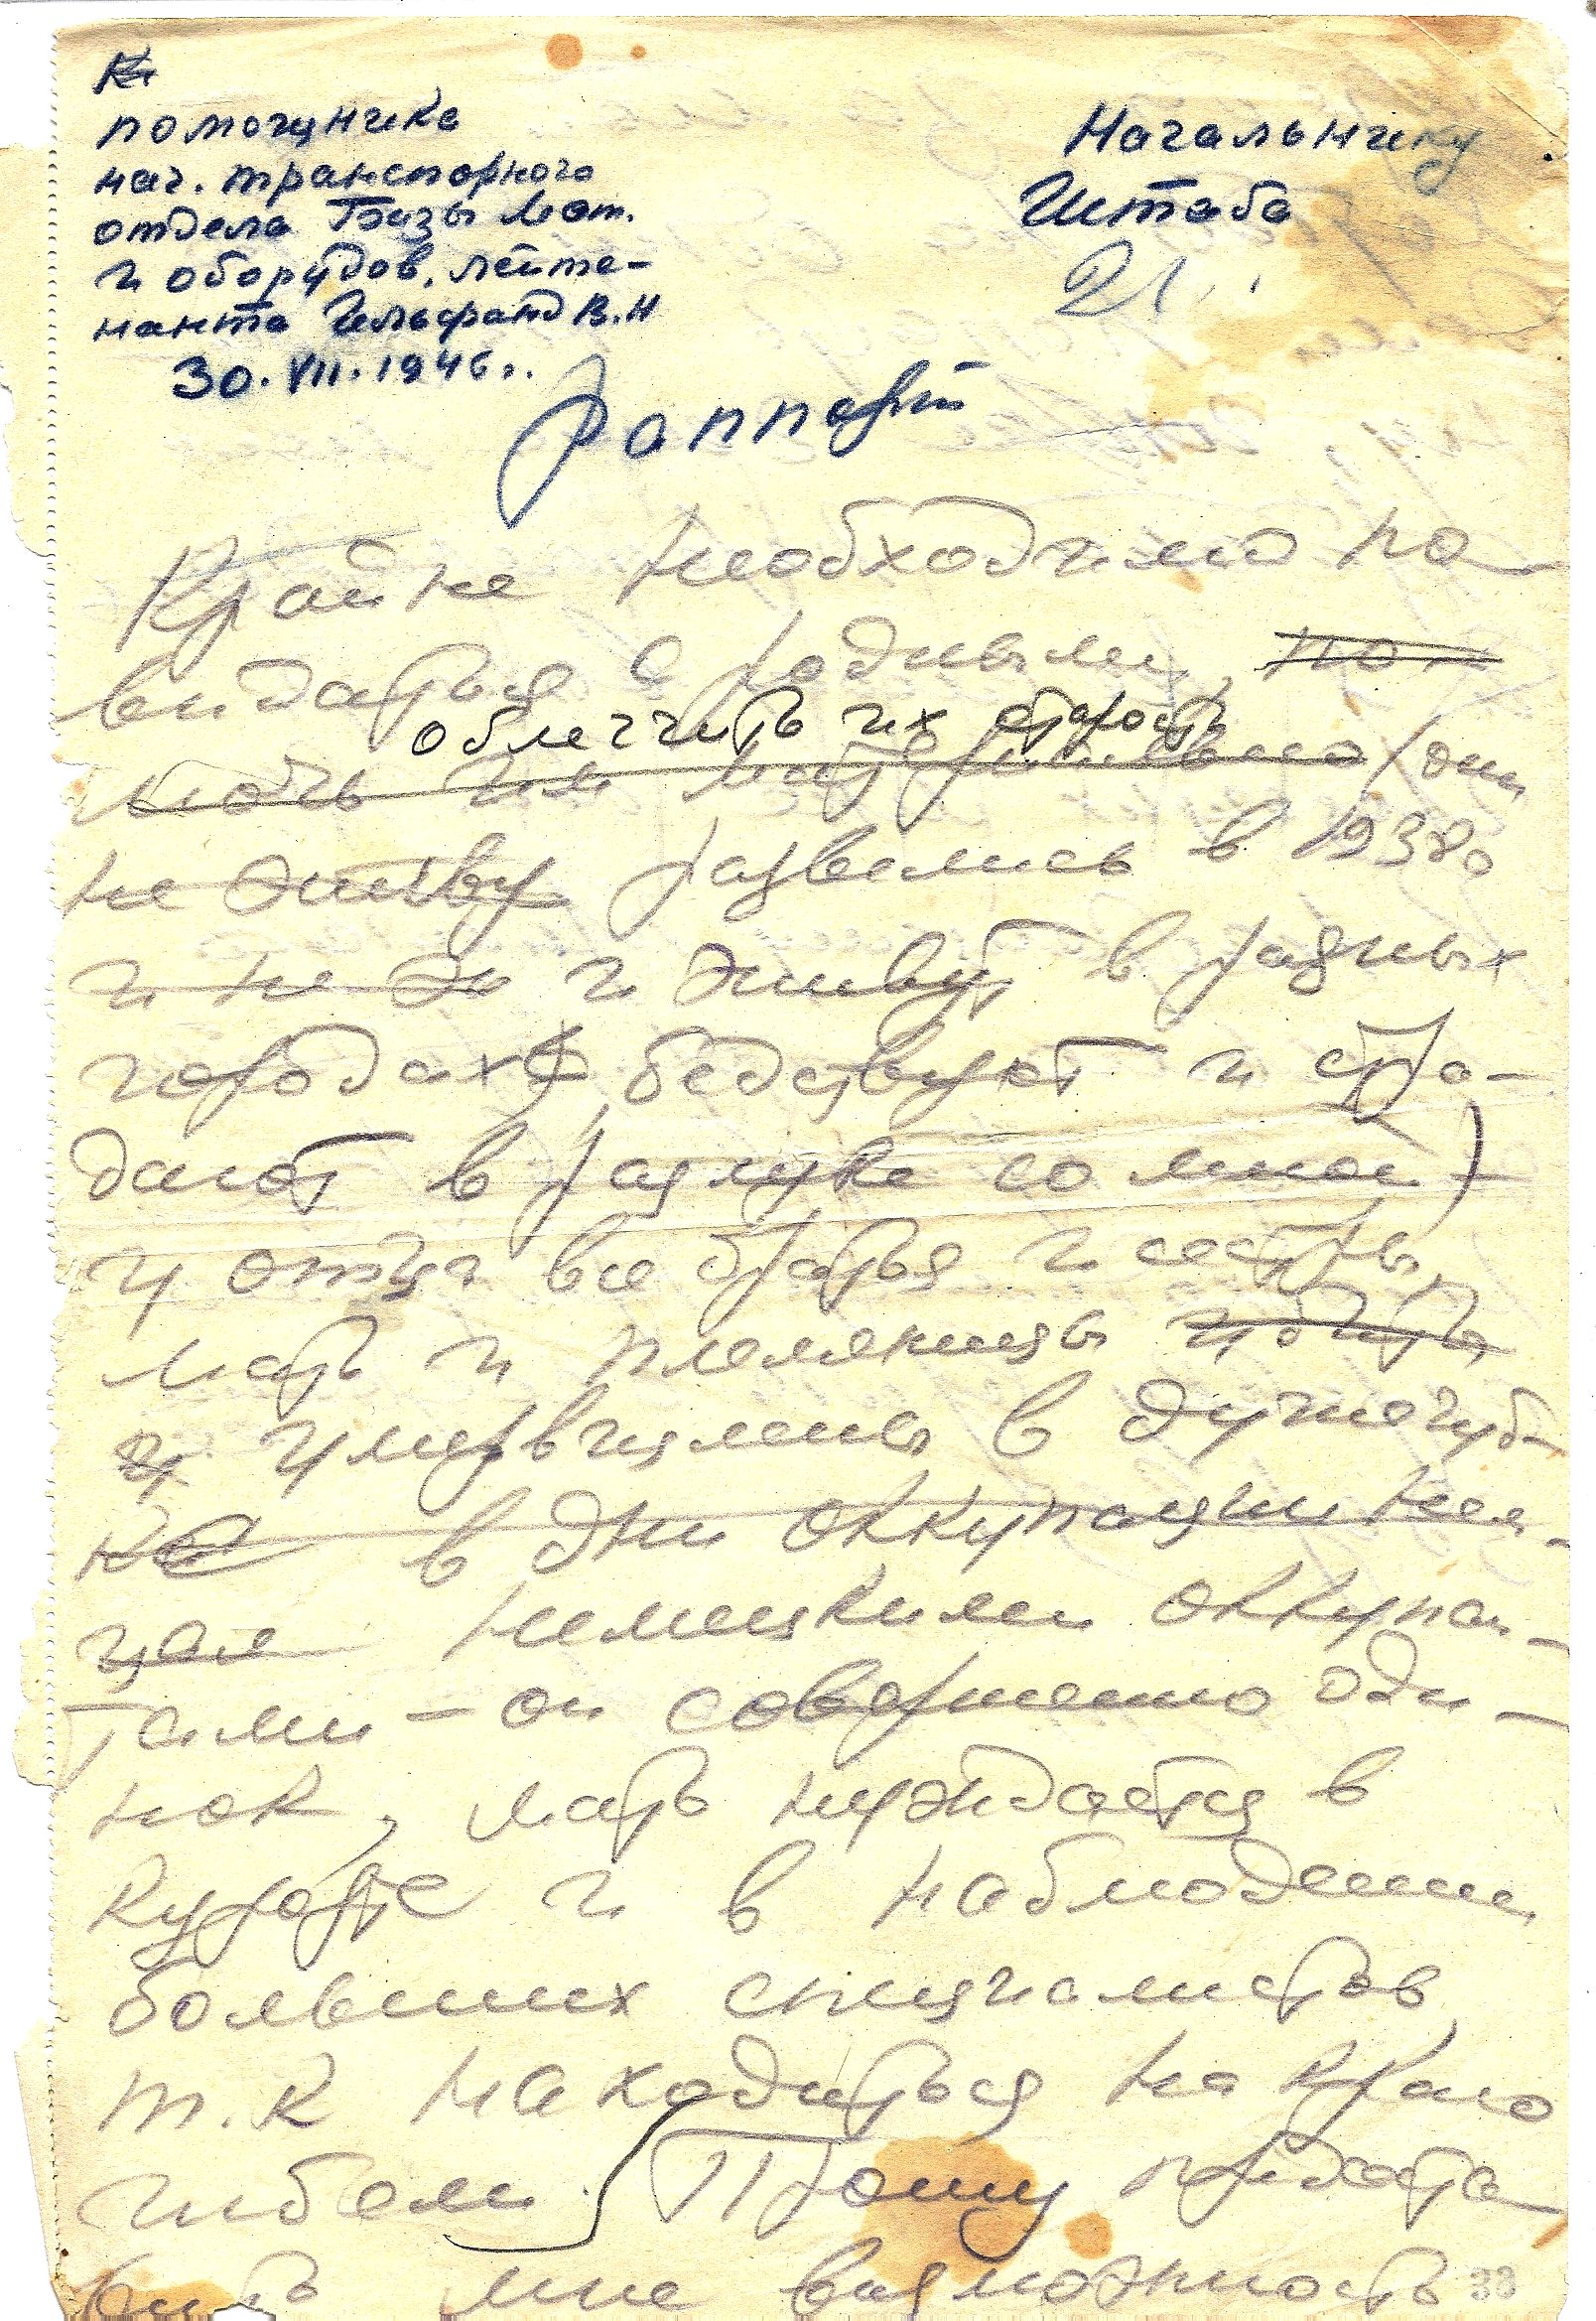 помощника
нач. транспорного
отдела Базы Мат.
и оборудов. лейте-
нанта Гельфанд В.Н
30.VII.1946г.
Начальнику
Штаба
21
Раппорт
Крайне необходимо по-
видаться с родными, по-
облегчить их старость
мочь им материально (они
не живут развелись в 1938г
и не жи и живут в разных
городах) бедствуют и стра-
дают в разлуке со мной)
У отца все братья и сестры,
мать и племянницы убиты
и умерщвлены в душегуб-
ке в дни оккупации нем-
цами немецкими оккупан-
тами – он совершенно оди-
нок, мать нуждается в
курорте и в наблюдении
больших специалистов,
т.к находиться на краю
гибели. Прошу предоста-
вить мне возможность
38